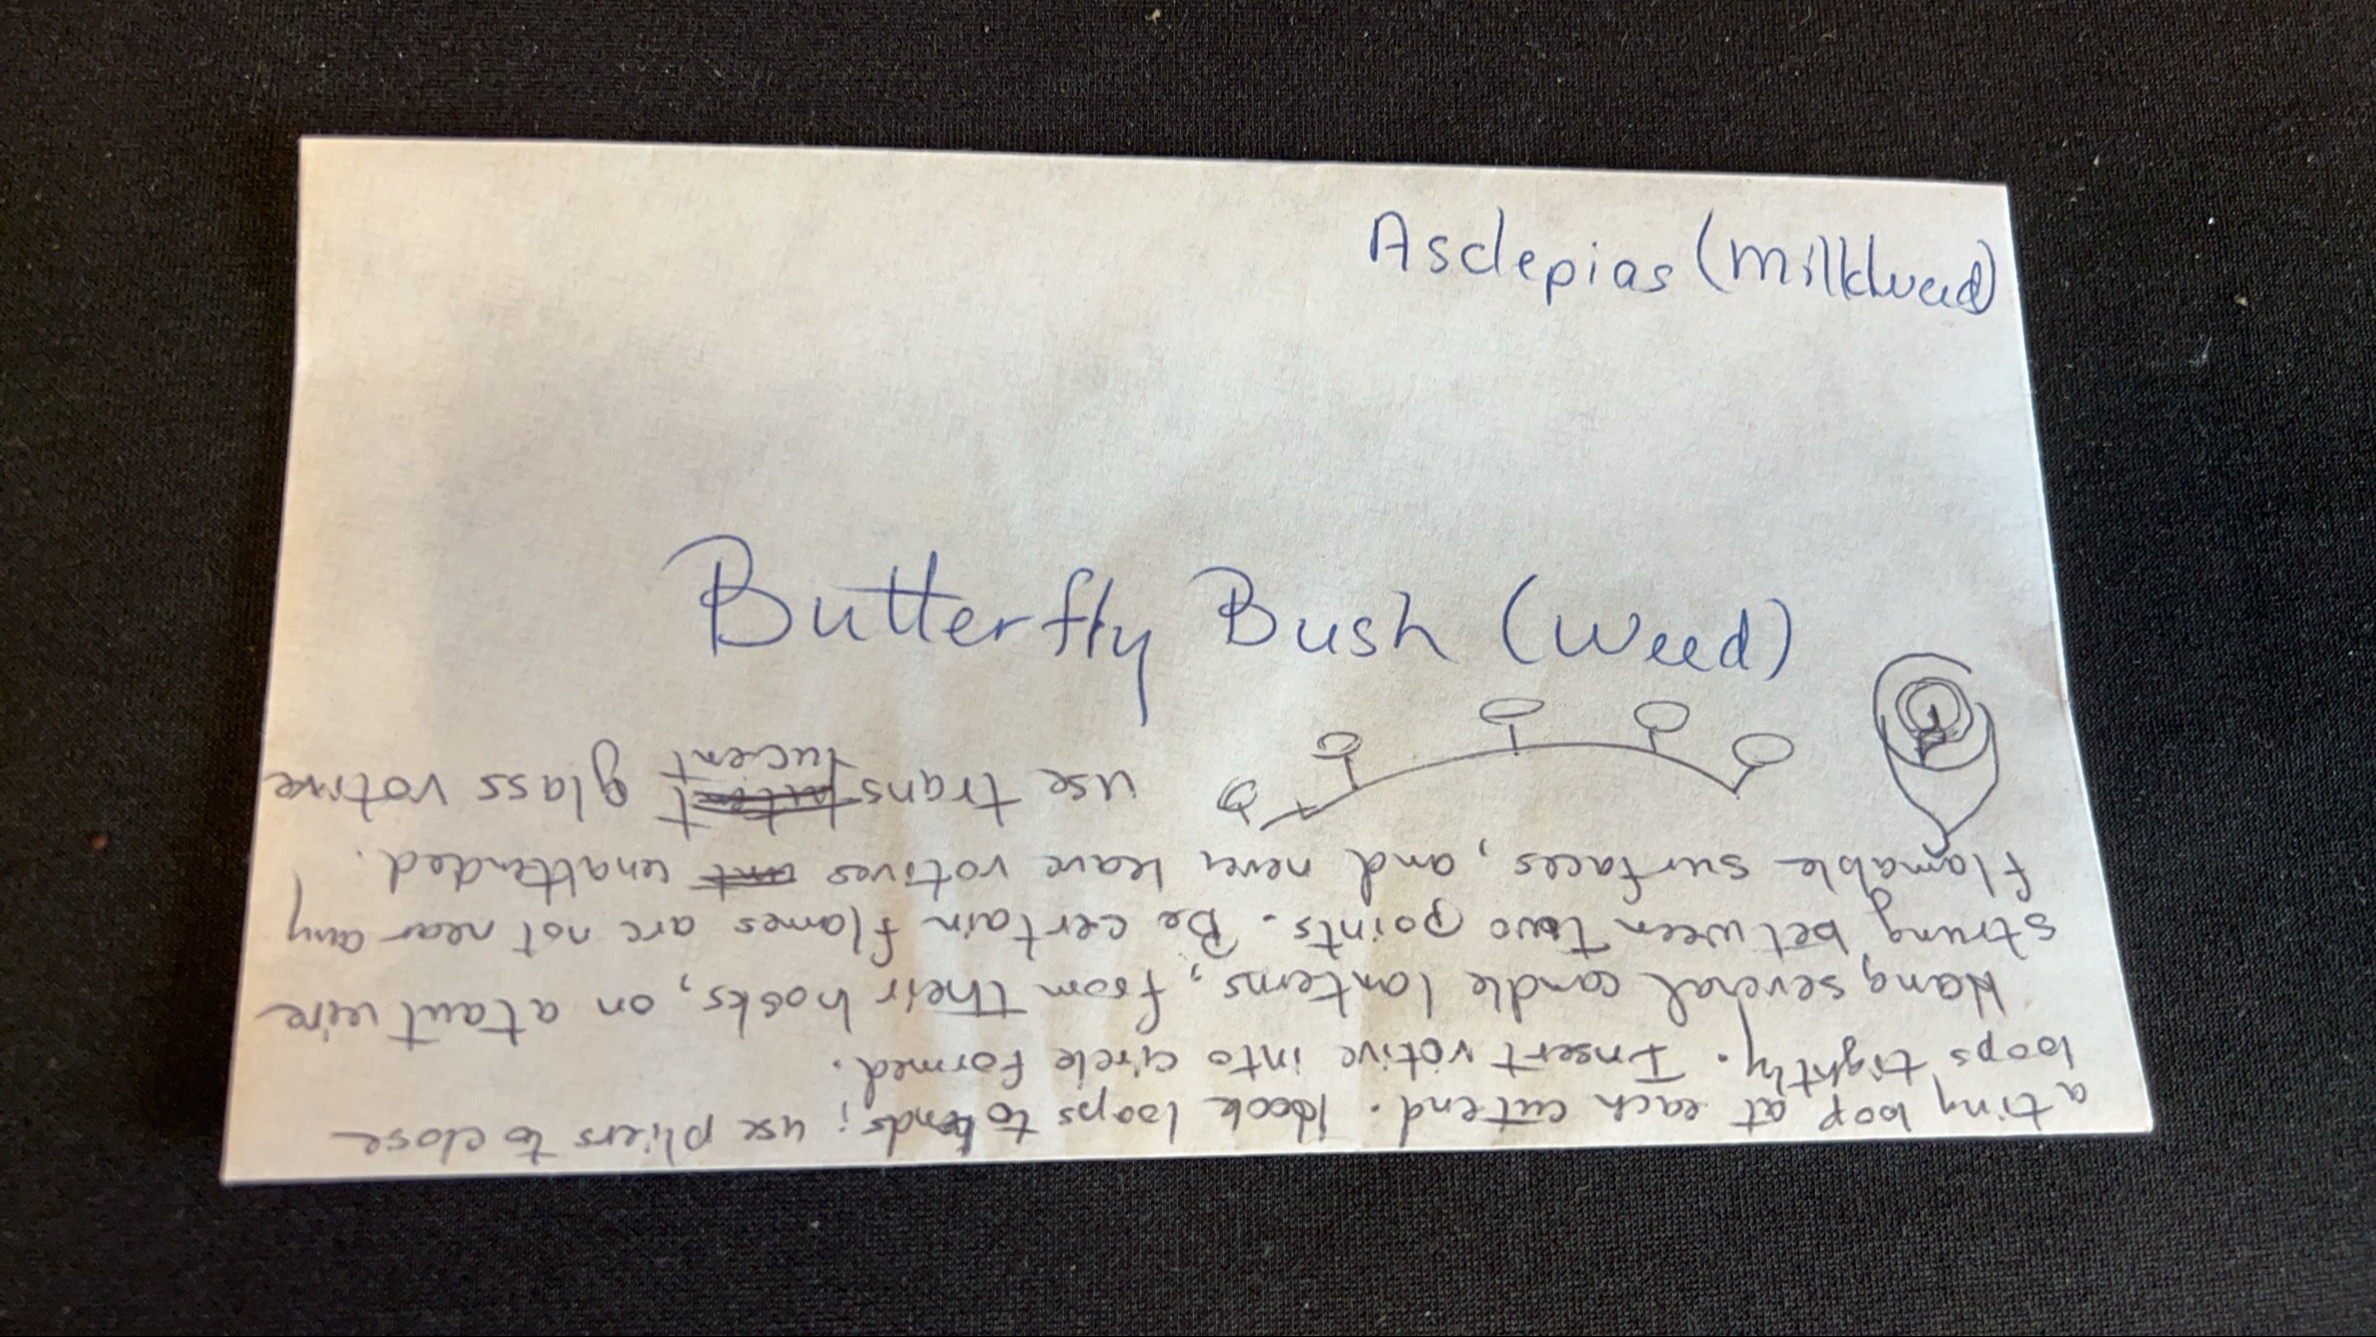 Asclepias (Milkweed)
Butterfly Bush (Weed)
a tiny loop at each cut end. Hook loops to ends; use pliers to close
loops tightly. Insert votive into circle formed.
Hang several candle lanterns, from their hooks, on a taut wire
strung between two points. Be certain flames are not near any
flamable surfaces, and never leave votives unattended.
use translucent glass votive